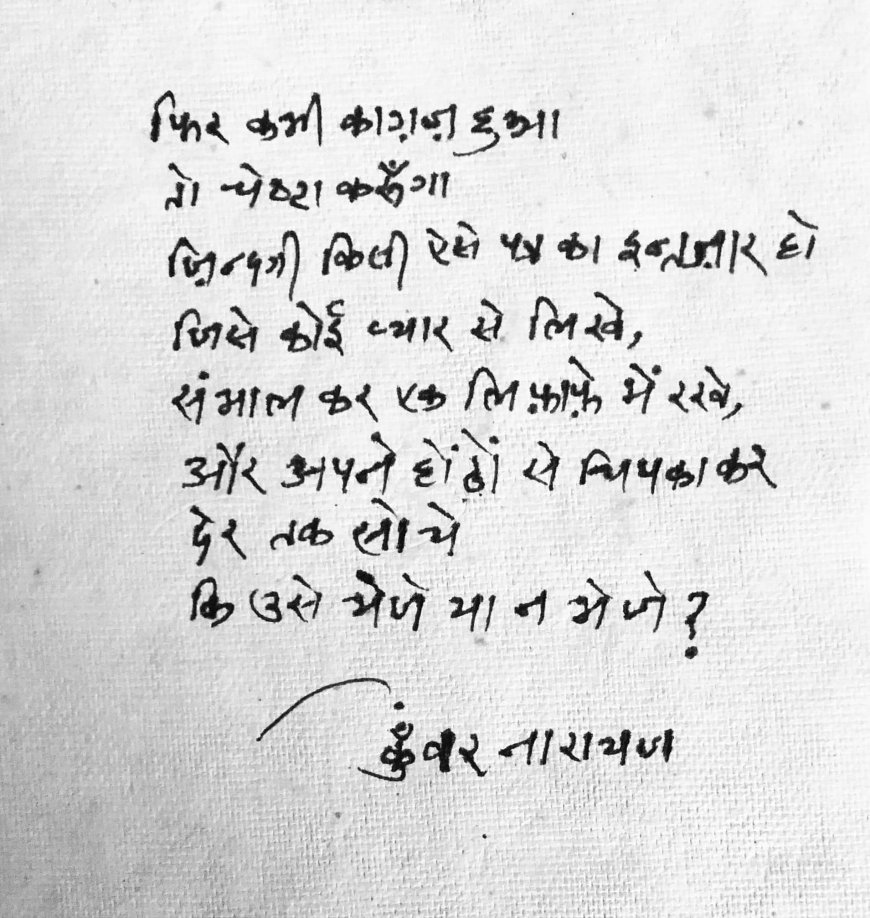 फिर कभी काग़ज़ हुआ
तो चेष्टा करूँगा
ज़िन्दगी किसी ऐसे पत्र का इन्तज़ार हो
जिसे कोई प्यार से लिखे,
संभाल कर एक लिफ़ाफ़े में रखे,
और अपने होंठों से चिपका कर
देर तक सोचे
कि उसे भेजे या न भेजे?
कुँवर नारायण